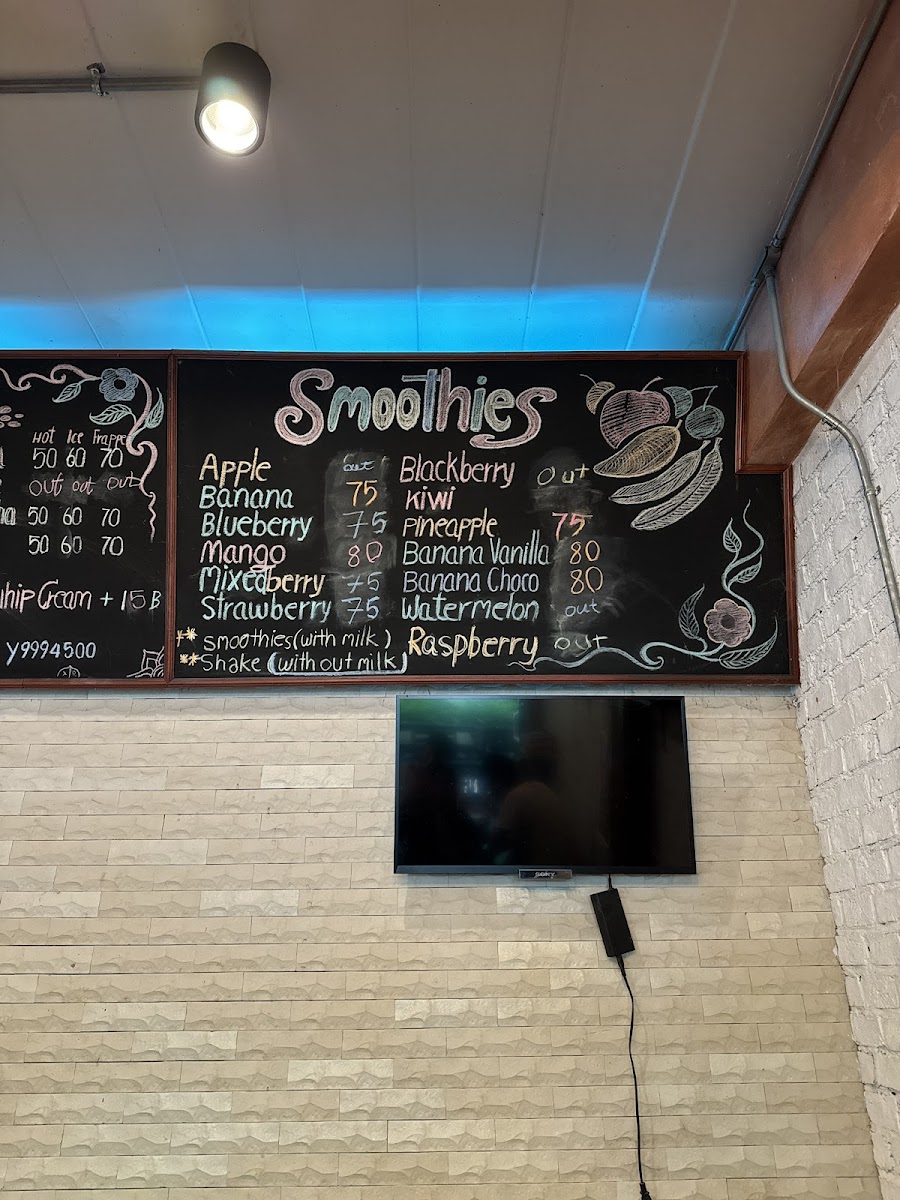 Hot Ice Frappe
50 60 70
out out out
50 60 70
50 60 70
hip Cream + 15 B
y9994500
Smoothies
Apple out
Banana 75
Blueberry 75
Mango 80
Mixedberry 75
Strawberry 75
** smoothies (with milk)
** Shake (with out milk)
Blackberry out
Kiwi
Pineapple 75
Banana Vanilla 80
Banana Choco 80
Watermelon out
Raspberry out
SONY